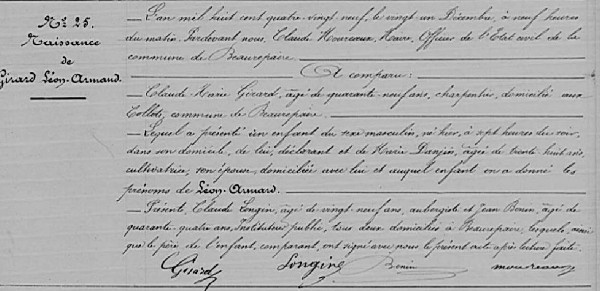 N° 25.
Naissance
de
Girard Léon-Armand.
L'an mil huit cent quatre-vingt neuf, le vingt-un Décembre, à neuf heures
du matin. Pardevant nous, Claude Maire, Officier de l'Etat civil de la
commune de Beaurepaire.
A comparu:
Claude-Marie Girard, âgé de quarante neuf ans, charpentier, domicilié aux
commune de Beaurepaire.
Lequel a présenté un enfant du sexe masculin, né hier, à sept heures du soir,
dans son domicile, de lui, déclarant et de Marie Danjin, âgée de trente huit ans,
cultivatrice, son épouse, domiciliée avec lui et auquel enfant on a donné les
prénoms de Léon-Armand.
Présents, Claude Longin, âgé de vingt neuf ans, aubergiste et Jean Benin, âgé de
quarante-quatre ans, Instituteur public, tous deux domiciliés à Beaurepaire, lesquels, ainsi
que le père de l'enfant, comparant, ont signé avec nous le présent acte après lecture faite.
Girard Longin Benin